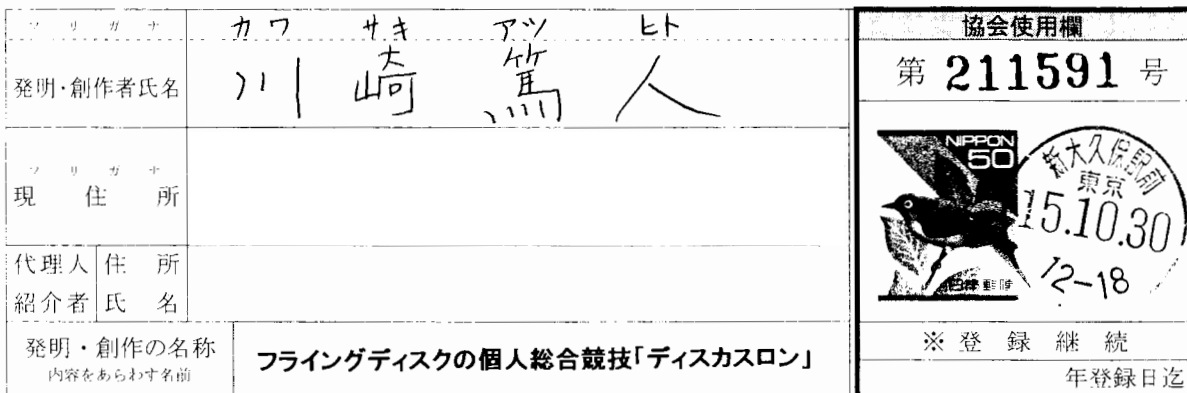 フリガナ カワ サキ アツ ヒト
発明・創作者氏名 川崎 篤人
フリガナ
現住所
代理人 住所
紹介者 氏名
発明・創作の名称
内容をあらわす名前
フライングディスクの個人総合競技「ディスカスロン」
協会使用欄
第 211591 号
NIPPON
50
日本郵便
新大久保駅前
東京
15.10.30
12-18
※登録継続
年登録日迄